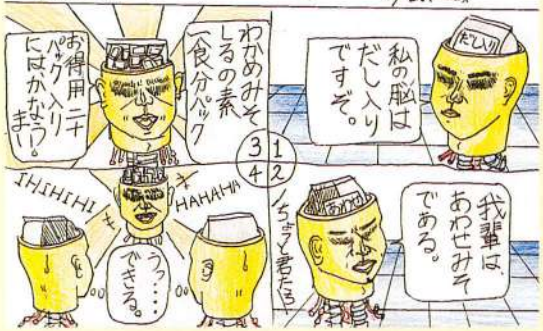 1
だし入り
私の脳は
だし入り
ですぞ。
2
あわせ
我輩は、
あわせみそ
である。
ちょっと君たち
3
わかめみそ
しるの素
一食分パック
お得用 二十
パック入り
にはかなう
まい!
4
IHIHIHI
HAHAHA
うっ・・・
できる。